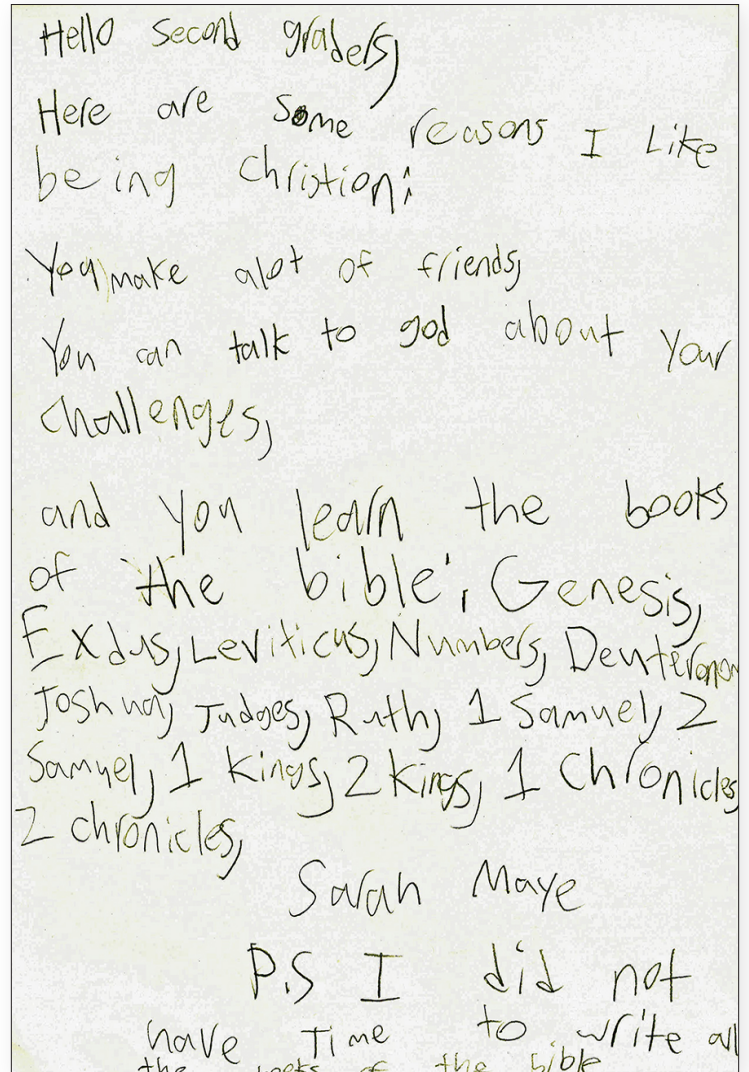 Hello second graders,
Here are some reasons I Like
being christion:
You make alot of friends,
You can talk to god about your
challenges,
and you learn the books
of the bible: Genesis,
Exdus, Leviticus, Numbers, Deuteronom
Joshua, Judges, Ruth, 1 Samuel, 2
Samuel, 1 Kings, 2 Kings, 1 Chronicles,
2 chronicles,
Sarah Maye
P.S I did not
have Time to write all
the books of the bible